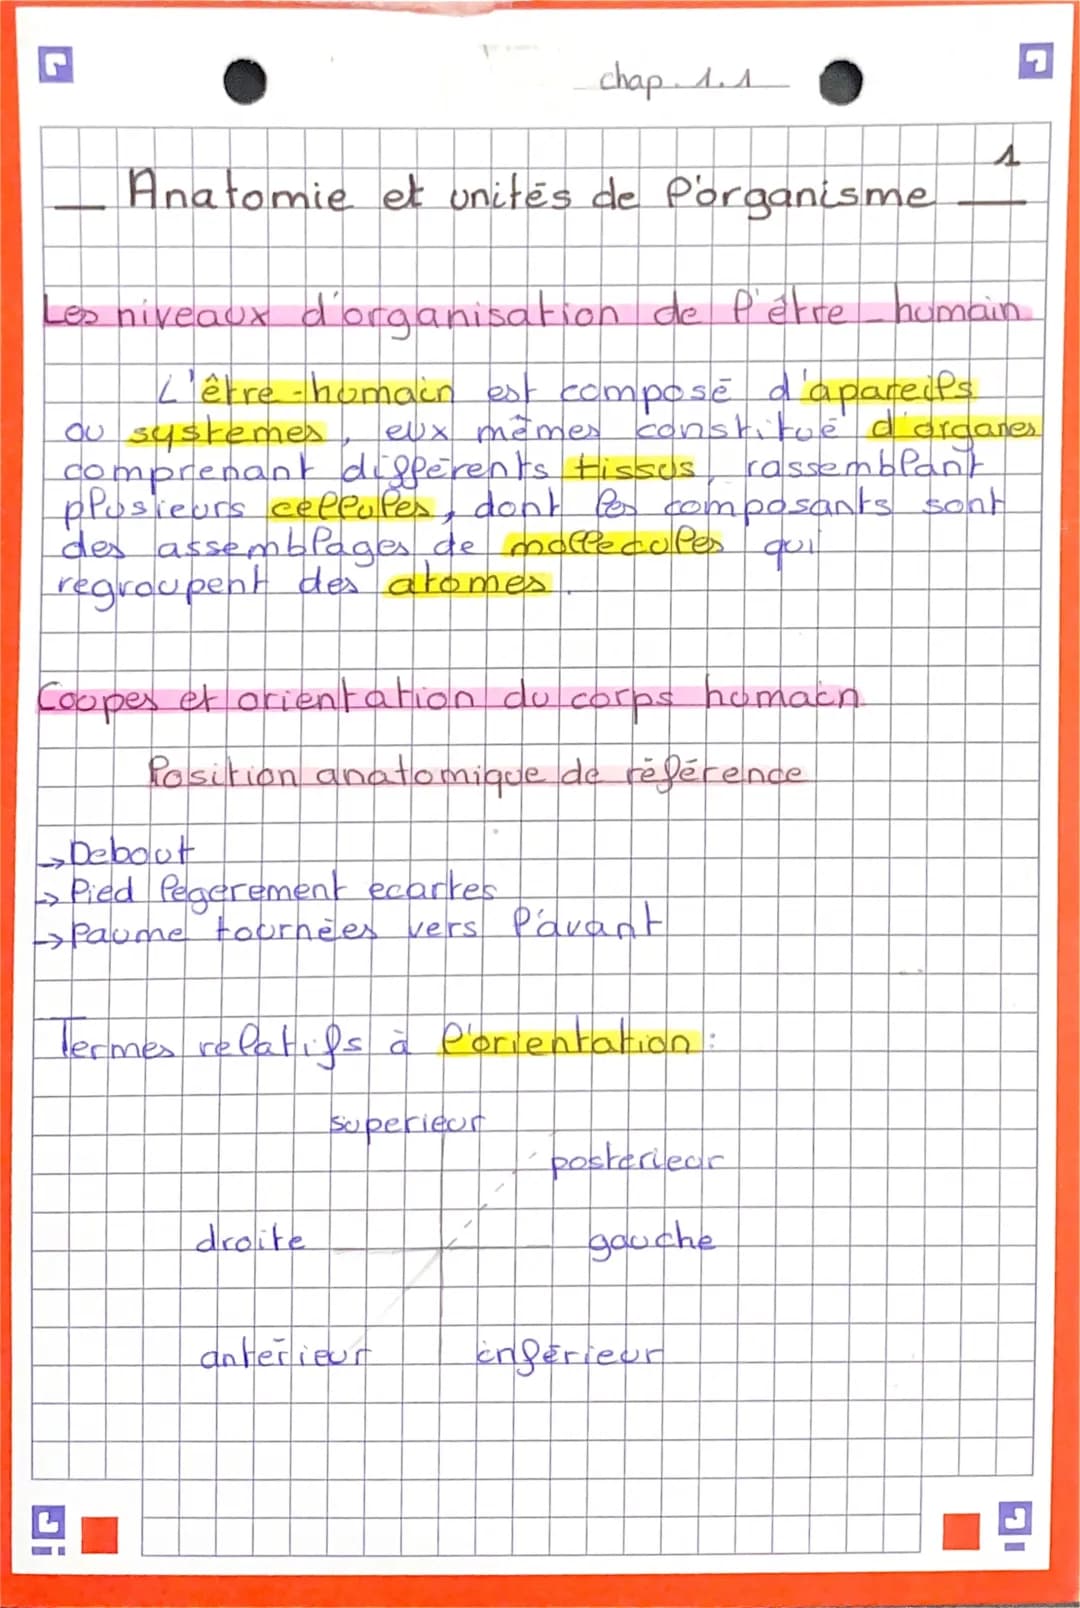 chap 1.1
1
Anatomie et unités de l'organisme
Les niveaux d'organisation de l'être humain
L'être-humain est composé d'apareils
ou systemes, eux mêmes constitué d'organes
comprenant différents tissus, rassemblant
plusieurs cellules, dont les composants sont
des assemblages de mollecules qui
regroupent des atomes.
Coupes et orientation du corps humain
Position anatomique de référence
→Debout
→Pied légerement ecartes
→Paume tournées vers l'avant
Termes relatifs à l'orientation :
superieur
posterieur
droite gauche
antérieur inférieur